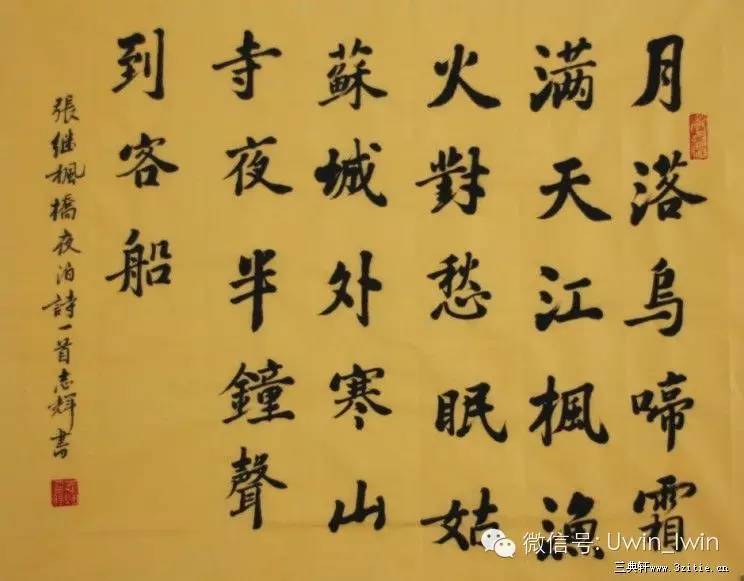 月落烏啼霜
满天江楓漁
火對愁眠姑
蘇城外寒山
寺夜半鐘聲
到客船
張继楓橋夜泊詩一首志輝書
微信号: Uwin_Iwin
三典轩www.3zitie.cn